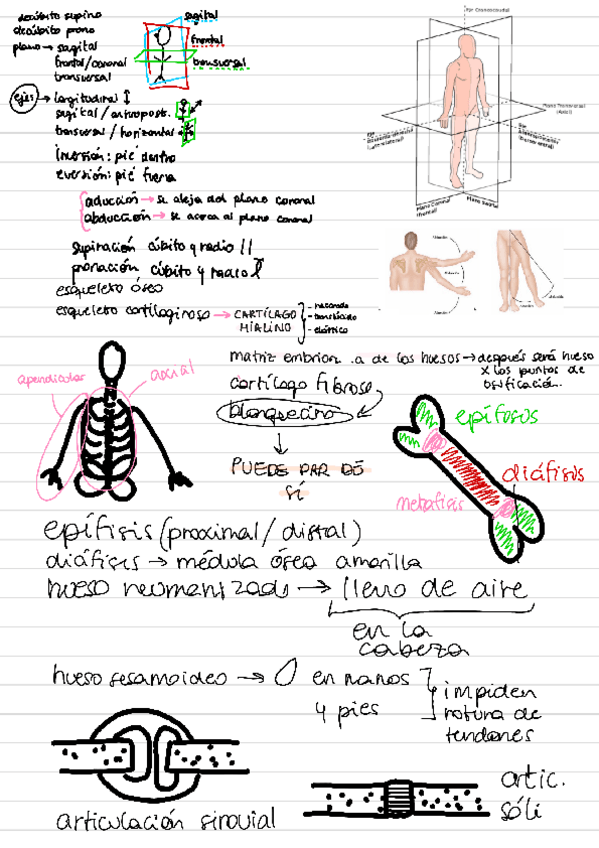 decúbito supino
decúbito prono
plano → sagital
frontal/coronal
transversal
sagital
frontal
transversal
ejes → longitudinal
sagital / anteropost.
transversal / horizontal
inversión: pie dentro
eversión: pie fuera
aducción → se aleja del plano coronal
abducción → se acerca al plano coronal
supinación cúbito y radio //
pronación cúbito y radio
esqueleto óseo
esqueleto cartilaginoso → CARTÍLAGO HIALINO
- elástico
Eje Craneocaudal
Plano Transversal
(Axial)
Plano Coronal
(frontal)
Plano Sagital
matriz embrion .a de los huesos → después será hueso
x los puntos de
osificación..
cartílago fibroso
blanquecino
PUEDE DAR DE
SÍ
apendicular
axial
epífisis
diáfisis
metafisis
epífisis (proximal / distal)
diáfisis → médula ósea amarilla
hueso neumatizado → lleno de aire
en la
cabeza
hueso sesamoideo → en manos
y pies
impiden
rotura de
tendones
articulación sinovial
artic.
sóli